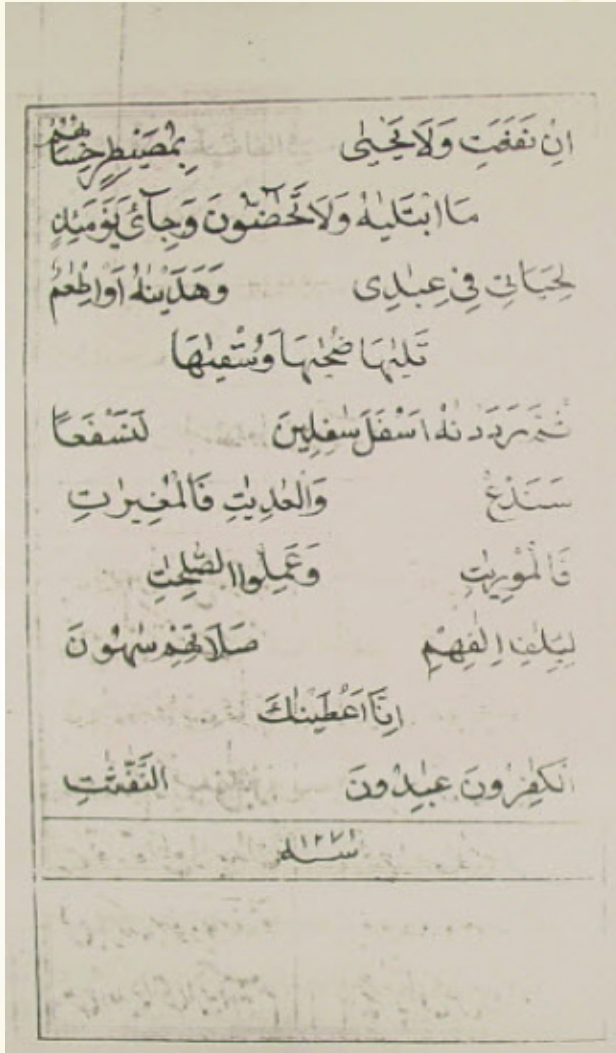 اِنْ نَفَعَتِ وَلَا يَحْيٰى بِمُصَيْطِرٍ حِسَابَهُمْ
مَا ابْتَلٰيهُ وَلَا تَحٰضُّوْنَ وَجِآئَ يَوْمَئِذٍ
لِحَيَاتِىْ فِىْ عِبٰدِى وَهَدَيْنٰهُ اَوْ اِطْعٰمٌ
تَلٰىهَا ضُحٰىهَا وَسُقْيٰهَا
ثُمَّ رَدَدْنٰهُ اَسْفَلَ سٰفِلِيْنَ لَنَسْفَعًا
سَنَدْعُ وَالْعٰدِيٰتِ فَالْمُغِيْرٰتِ
فَالْمُوْرِيٰتِ وَعَمِلُوا الصّٰلِحٰتِ
لِاِيْلٰفِ اٖلٰفِهِمْ صَلَاتِهِمْ سٰهُوْنَ
اِنَّا اَعْطَيْنٰكَ
الْكٰفِرُوْنَ عٰبِدُوْنَ النَّفّٰثٰتِ
سنة ١٢٧١